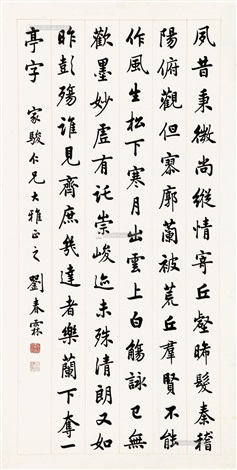 夙昔秉徽尚縱情寄丘壑晞髮秦稽
陽俯觀但寥廓蘭被荒丘羣賢不能
作風生松下寒月出雲上白觴詠已無
歡墨妙虛有託崇峻迹未殊清朗又如
昨彭殤誰見齊庶幾達者樂蘭下奪一
亭字
家駿仁兄大雅正之 劉春霖